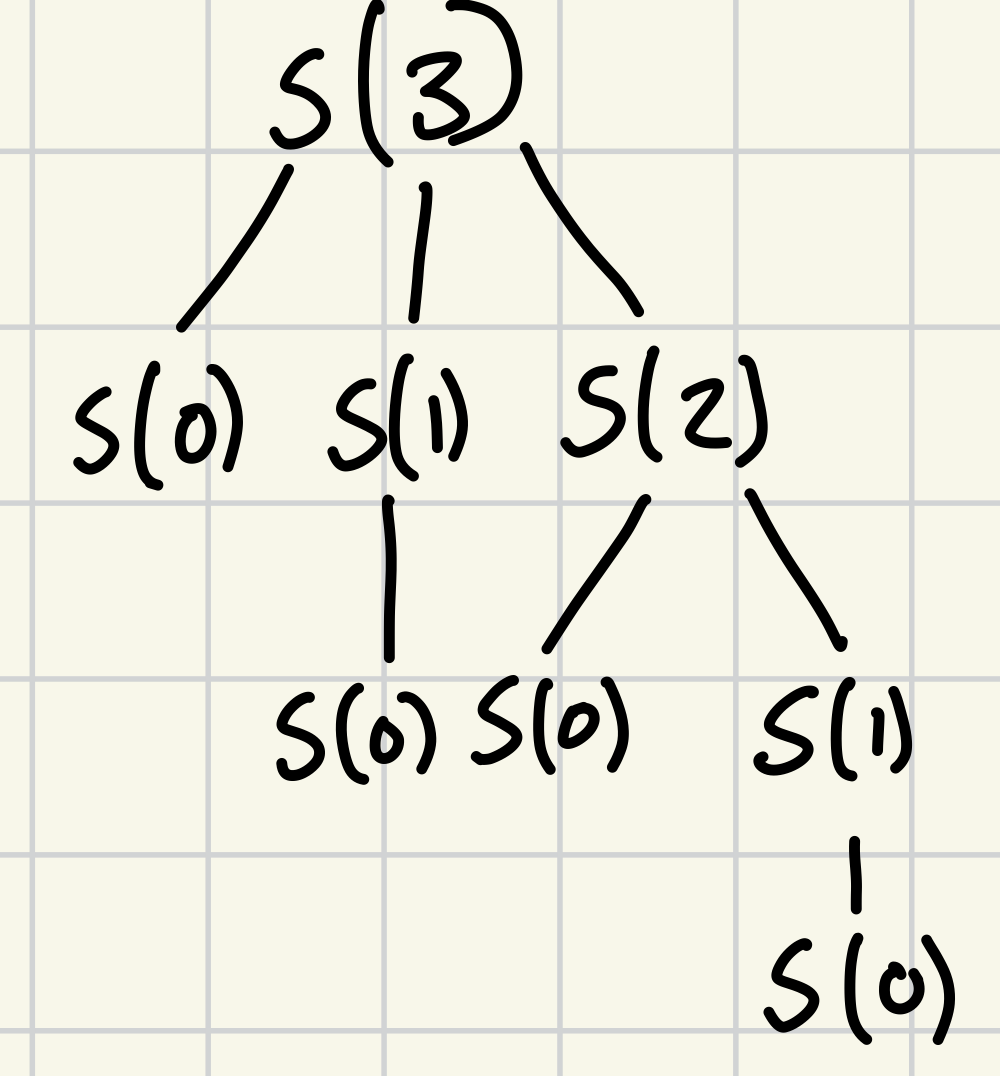 S(3)
S(0) S(1) S(2)
S(0) S(0) S(1)
S(0)